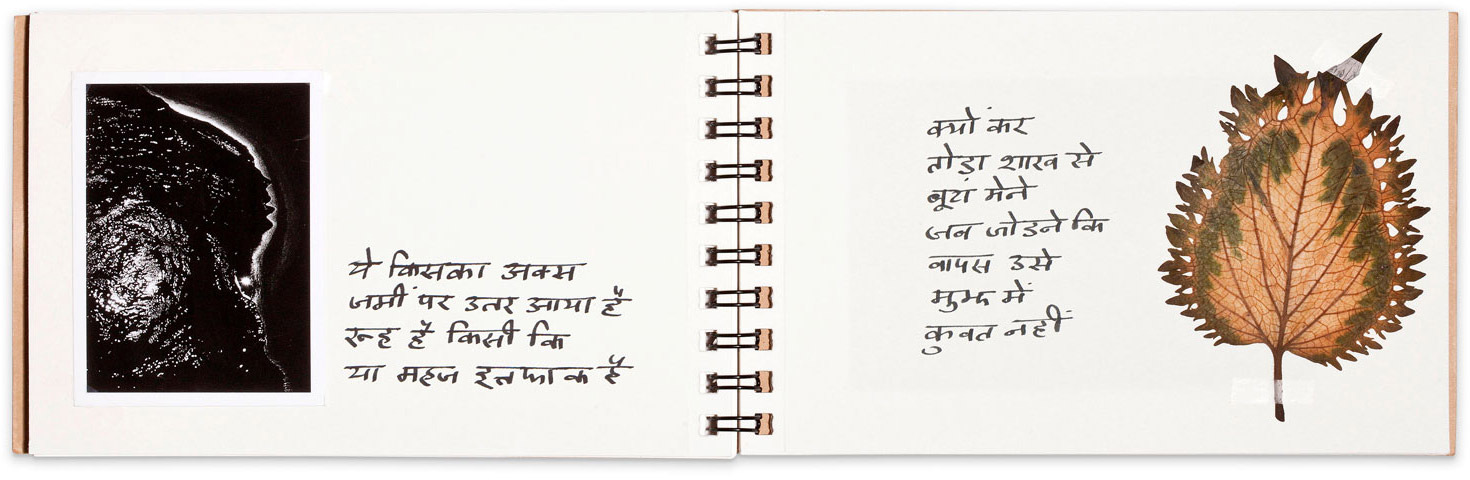 ये किसका अक्स
जमीं पर उतर आया है
रूह है किसी कि
या महज इत्तफाक है
क्यों कर
तोड़ा शाख से
बूटा मेने
जब जोडने कि
वापस उसे
मुझ में
कुवत नहीं